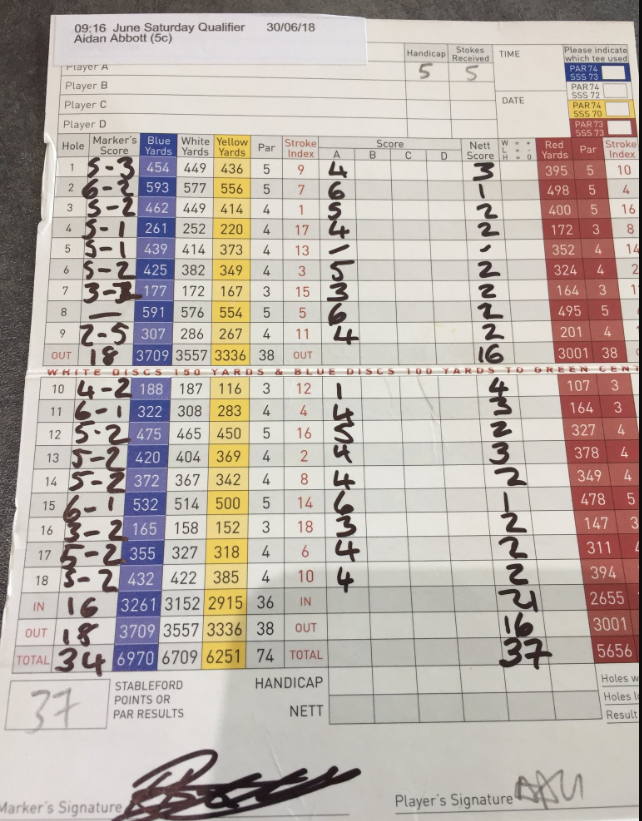 09:16 June Saturday Qualifier 30/06/18
Aidan Abbott (5c)
Handicap Stokes Received TIME Please indicate which tee used
Player A 5 5 PAR 74 SSS 73
Player B PAR 74 SSS 72
Player C DATE PAR 74 SSS 70
Player D PAR 73 SSS 73
Hole Marker's Score Blue Yards White Yards Yellow Yards Par Stroke Index Score A B C D Nett Score W = + L = - H = 0 Red Yards Par Stroke Index
1 5-3 454 449 436 5 9 4 3 395 5 10
2 6-2 593 577 556 5 7 6 1 498 5 4
3 5-2 462 449 414 4 1 5 2 400 5 16
4 5-1 261 252 220 4 17 4 2 172 3 8
5 5-1 439 414 373 4 13 - - 352 4 14
6 5-2 425 382 349 4 3 5 2 324 4 2
7 3-2 177 172 167 3 15 3 2 164 3
8 - 591 576 554 5 5 6 2 495 5 6
9 2-5 307 286 267 4 11 4 2 201 4
OUT 18 3709 3557 3336 38 OUT 16 3001 38
WHITE DISCS 150 YARDS & BLUE DISCS 100 YARDS TO GREEN CENT
10 4-2 188 187 116 3 12 1 4 107 3
11 6-1 322 308 283 4 4 4 3 164 3
12 5-2 475 465 450 5 16 5 2 327 4
13 5-2 420 404 369 4 2 4 3 378 4
14 5-2 372 367 342 4 8 4 2 349 4
15 6-1 532 514 500 5 14 6 1 478 5
16 3-2 165 158 152 3 18 3 2 147 3
17 5-2 355 327 318 4 6 4 2 311 4
18 5-2 432 422 385 4 10 4 2 394
IN 16 3261 3152 2915 36 IN 21 2655
OUT 18 3709 3557 3336 38 OUT 16 3001
TOTAL 34 6970 6709 6251 74 TOTAL 37 5656
37 STABLEFORD POINTS OR PAR RESULTS HANDICAP Holes
NETT Holes
Result
Marker's Signature Player's Signature